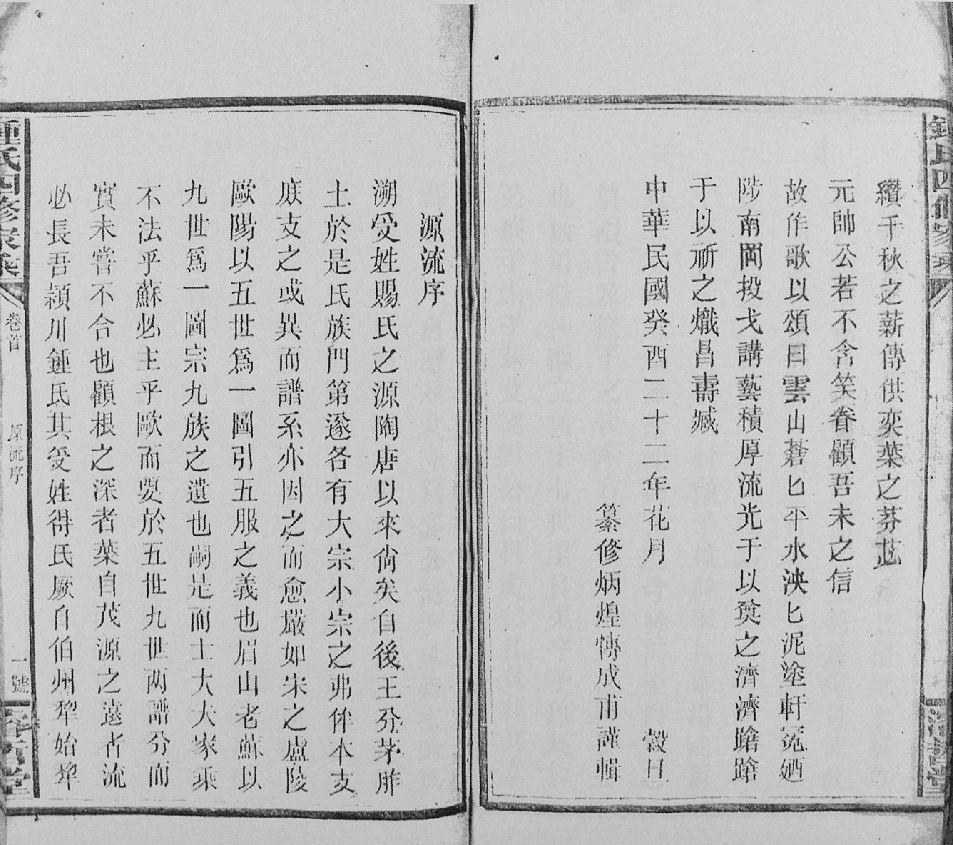 鍾氏四修家乘
纘千秋之薪傳供奕葉之芬苾
元帥公若不含笑眷顧吾未之信
故作歌以頌曰雲山蒼匕平水泱匕泥塗軒冕廼
陟南岡投戈講藝積厚流光于以奠之濟濟蹌蹌
于以祈之熾昌壽臧
中華民國癸酉二十二年花月 穀旦
纂修炳煌傳成甫謹輯
源流序
溯受姓賜氏之源陶唐以來尙矣自後王分茅胙
土於是氏族門第遂各有大宗小宗之弗侔本支
庶支之或異而譜系亦因之而愈嚴如宋之廬陵
歐陽以五世爲一圖引五服之義也眉山老蘇以
九世爲一圖宗九族之遺也嗣是而士大夫家乘
不法乎蘇必主乎歐而要於五世九世两譜分而
實未嘗不合也顧根之深者葉自茂源之遠者流
必長吾潁川鍾氏其受姓得氏厥自伯州犂始犂
鍾氏四修家乘
卷首
原流序
一號